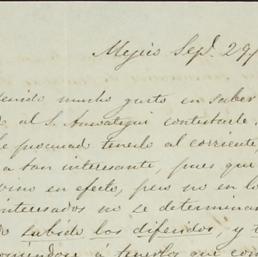 Mejico Sep.^t 29
tenido mucho gusto en saber
al S. contestarle
procurado tenerlo al corriente,
a tan interesante, pues que
vino en efecto, pero no en lo
interesados no se determinan
do subido los diferidos, y
á tenerlos que con